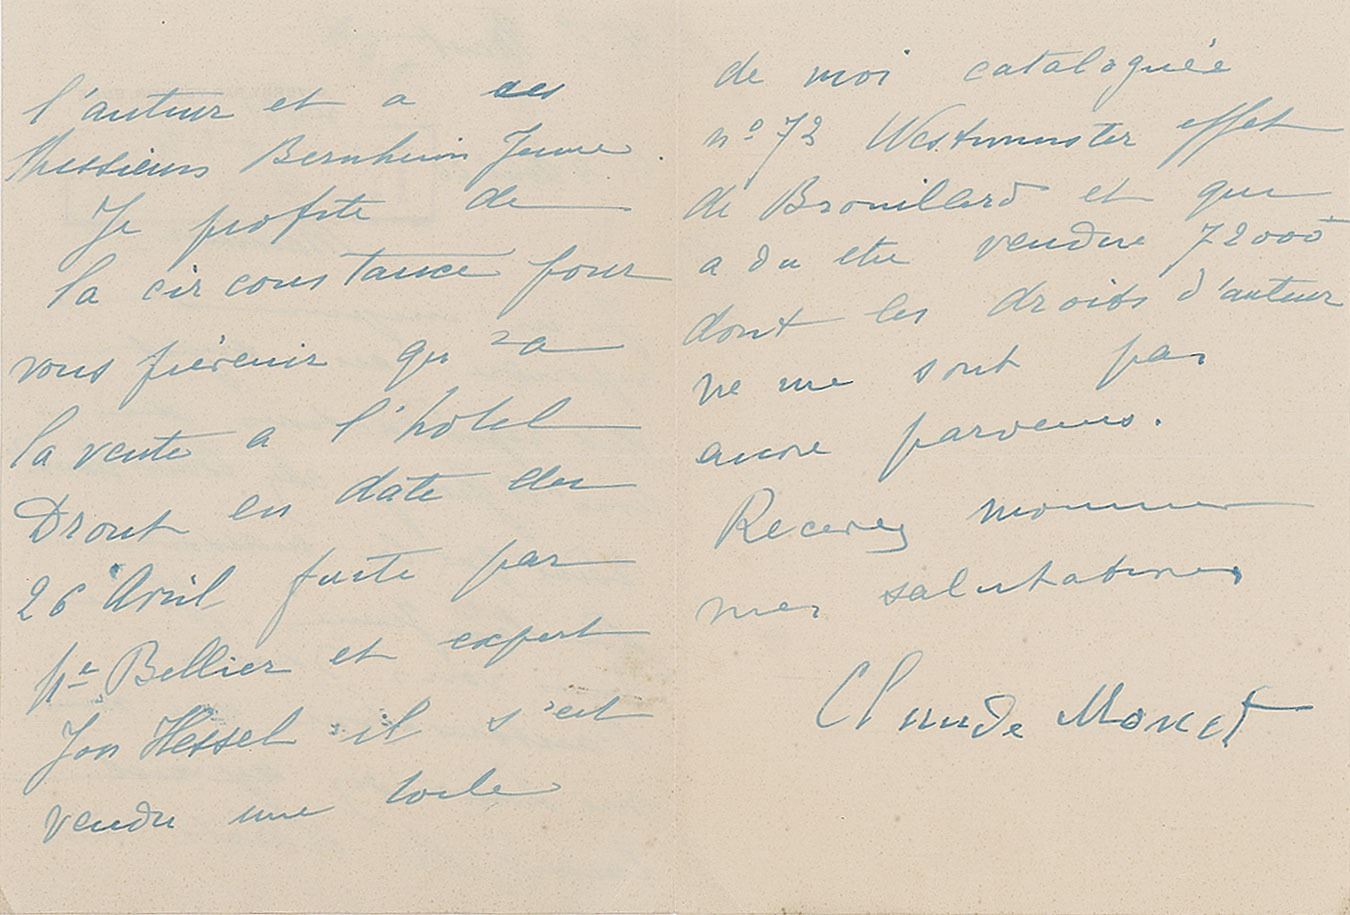 l'auteur et a ces
Messieurs Bernheim Jeune.
Je profite de
la circonstance pour
vous prévenir qu'a
la vente a l'hotel
Drout en date du
26 Avril faite par
Me Bellier et expert
Jos Hessel il s'est
vendu une toile
de moi cataloguée
no 73 Westminster effet
de Brouillard et qui
a du etre vendue 72000
dont les droits d'auteur
ne me sont pas
encore parvenus.
Recevez monsieur
mes salutations
Claude Monet